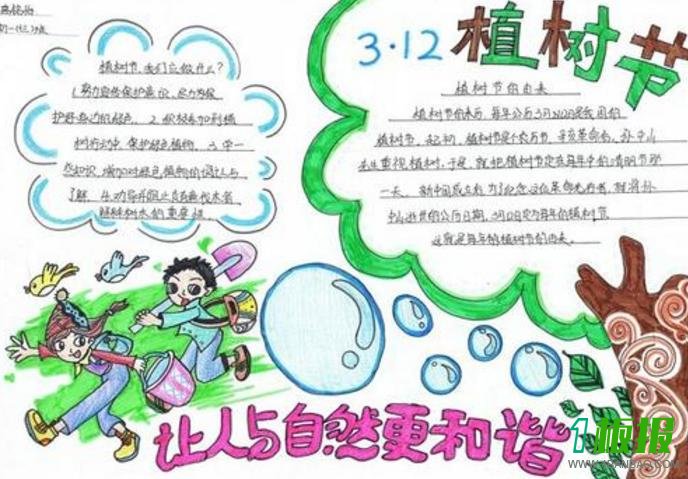 初一
植树节,我们应做什么?
1.努力宣传保护意识,尽力为保
护好身边的绿色。2.积极参加到植
树行动中,保护绿色植物。3.学一
些知识,增加对绿色植物的认识与
了解。4.劝导并阻止乱砍乱伐木者,
解释树木的重要性。
3·12 植树节
植树节的由来
植树节的来历,每年公历3月12日是我国的
植树节,起初,植树节是个农历节,辛亥革命后,孙中山
先生重视植树,于是,就把植树节定在每年中的清明节那
一天。新中国成立后,为了纪念这位革命先行者,就将孙
中山逝世的公历日期,3月12日定为每年的植树节
这就是每年的植树节的由来。
让人与自然更和谐
1板报
WWW.1BANBAO.COM